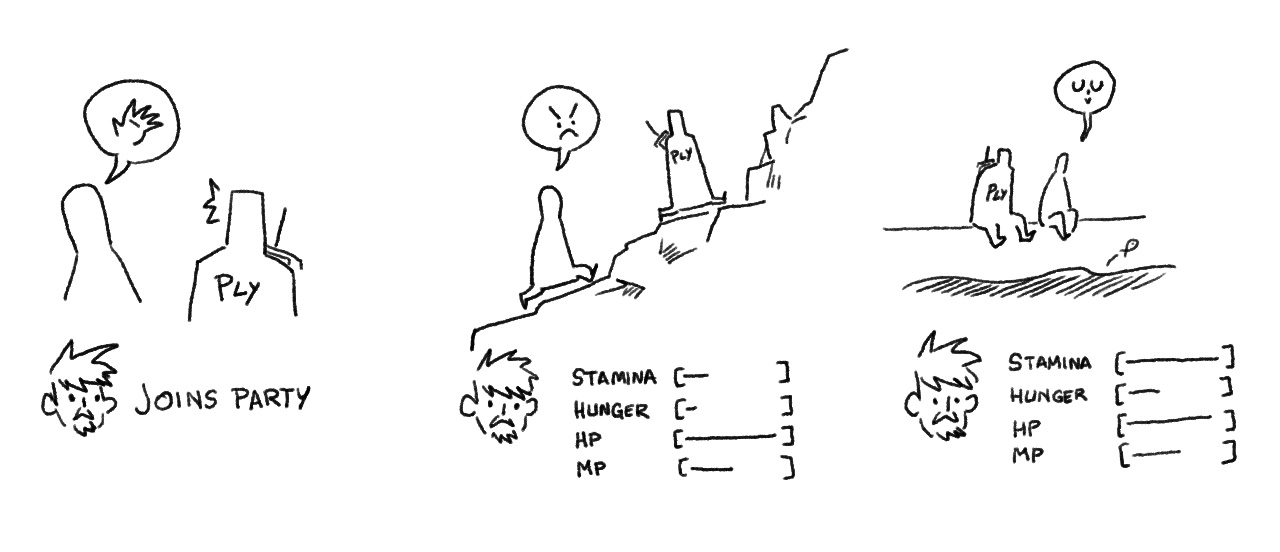 PLY
JOINS PARTY
PLY
STAMINA
HUNGER
HP
MP
PLY
P
STAMINA
HUNGER
HP
MP